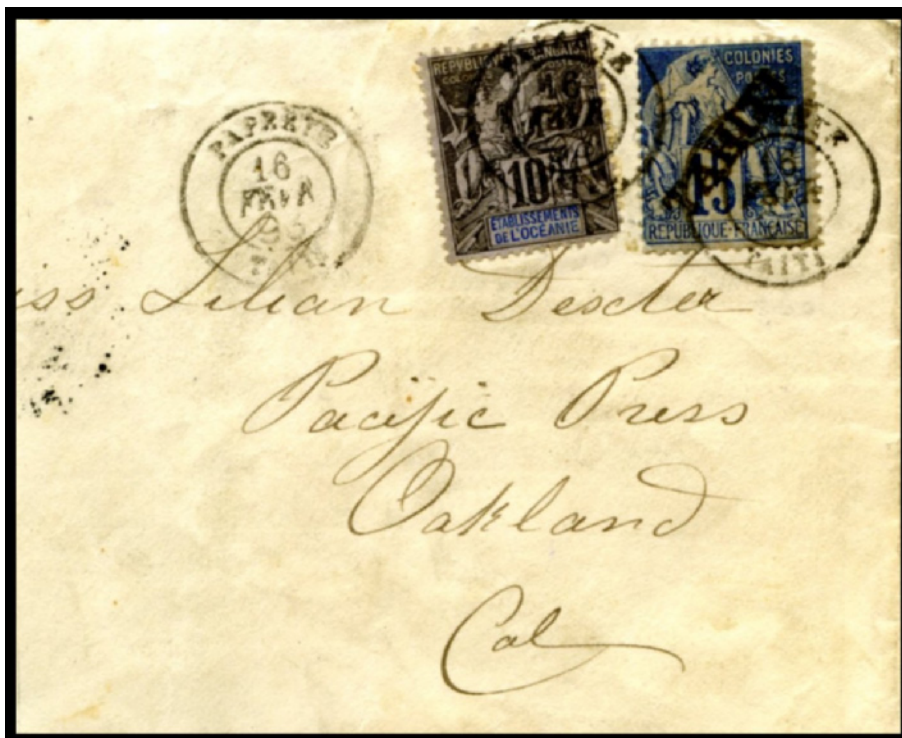 PAPEETE
16
FEVR
RÉPUBLIQUE FRANÇAISE
10
ÉTABLISSEMENTS
DE L'OCÉANIE
16
COLONIES
POSTES
TAHITI
15
RÉPUBLIQUE FRANÇAISE
16
TAITI
iss Lilian Dexter
Pacific Press
Oakland
Cal